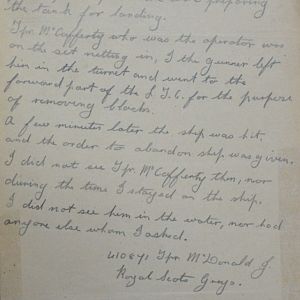 preparing
the tank for landing.
Tpr. McCafferty who was the operator was
on the set netting in, I the gunner left
him in the turret and went to the
forward part of the L.T.C. for the purpose
of removing blocks.
A few minutes later the ship was hit
and the order to abandon ship was given.
I did not see Tpr. McCafferty then, nor
during the time I stayed on the ship.
I did not see him in the water, nor had
anyone else whom I asked.
410871 Tpr McDonald J.
Royal Scots Greys.